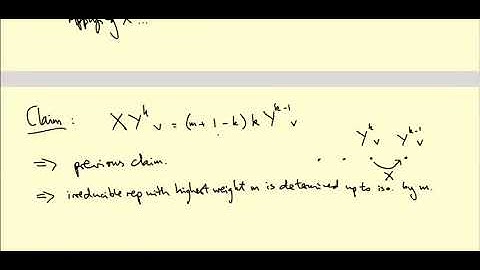 Applying X ...
Claim : X Y^k v = (m+1-k) k Y^{k-1} v
Y^k v Y^{k-1} v
⇒ previous claim.
X
⇒ irreducible rep with highest weight m is determined up to iso. by m.